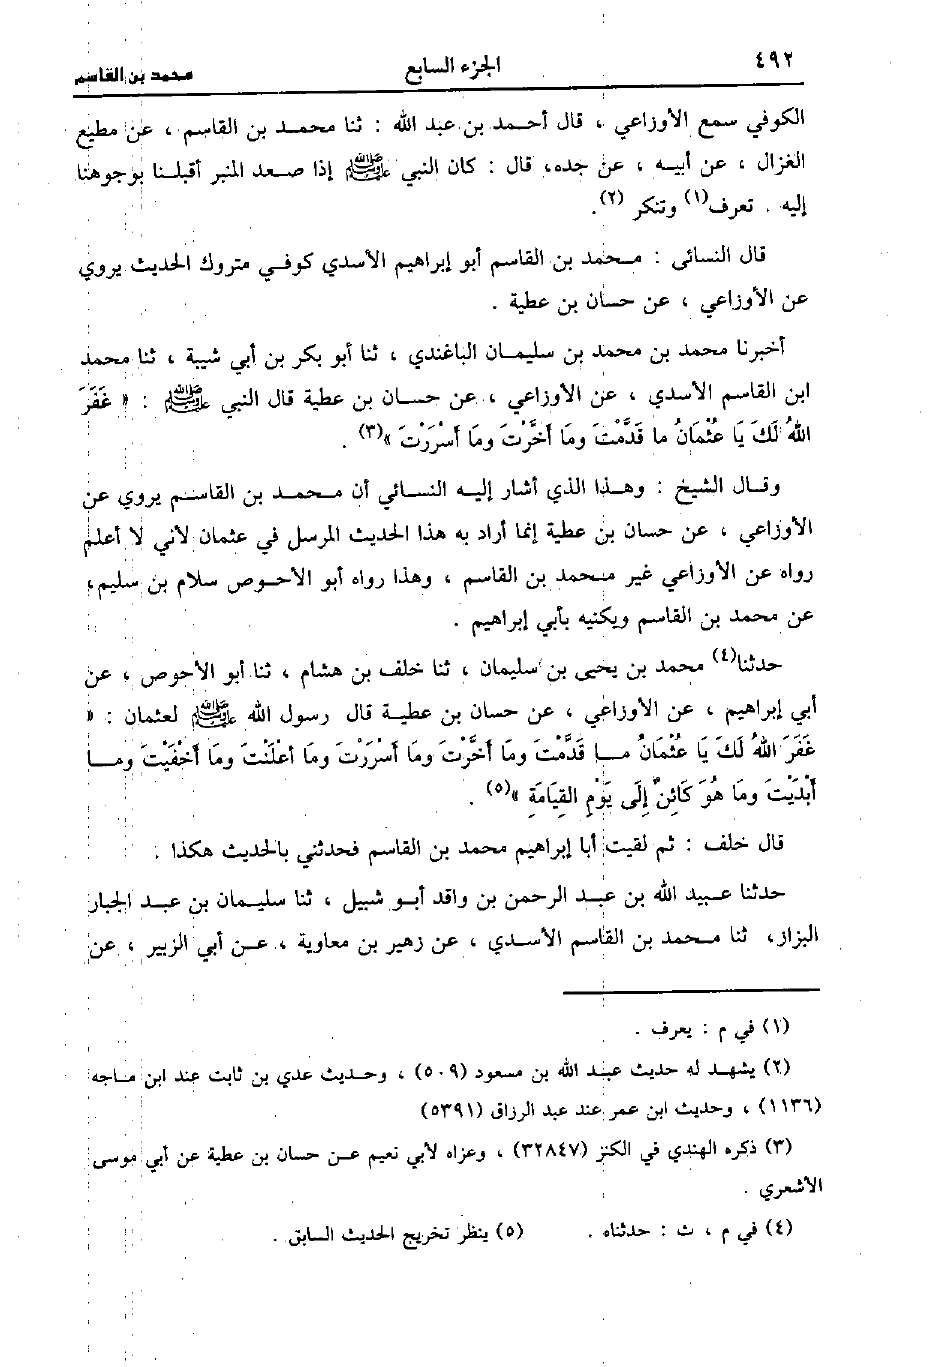 ٤٩٢
الجزء السابع
محمد بن القاسم
الكوفي سمع الأوزاعي ، قال أحمد بن عبد الله : ثنا محمد بن القاسم ، عن مطيع
الغزال ، عن أبيه ، عن جده، قال : كان النبي ﷺ إذا صعد المنبر أقبلنا بوجوهنا
إليه . تعرف(١) وتنكر (٢).
قال النسائى : محمد بن القاسم أبو إبراهيم الأسدي كوفي متروك الحديث يروي
عن الأوزاعي ، عن حسان بن عطية .
أخبرنا محمد بن محمد بن سليمان الباغندي ، ثنا أبو بكر بن أبي شيبة ، ثنا محمد
ابن القاسم الأسدي ، عن الأوزاعي ، عن حسان بن عطية قال النبي ﷺ : « غَفَرَ
اللهُ لَكَ يَا عُثْمَانُ ما قَدَّمْتَ ومَا أخَّرْتَ ومَا أسْرَرْتَ »(٣) .
وقال الشيخ : وهذا الذي أشار إليه النسائي أن محمد بن القاسم يروي عن
الأوزاعي ، عن حسان بن عطية إنما أراد به هذا الحديث المرسل في عثمان لأني لا أعلم
رواه عن الأوزاعي غير محمد بن القاسم ، وهذا رواه أبو الأحوص سلام بن سليم،
عن محمد بن القاسم ويكنيه بأبي إبراهيم .
حدثنا(٤) محمد بن يحيى بن سليمان ، ثنا خلف بن هشام ، ثنا أبو الأحوص ، عن
أبي إبراهيم ، عن الأوزاعي ، عن حسان بن عطية قال رسول الله ﷺ لعثمان : «
غَفَرَ اللهُ لَكَ يَا عُثْمَانُ مـا قَدَّمْتَ ومَا أخَّرْتَ ومَا أسْرَرْتَ ومَا أعْلَنْتَ ومَا أخْفَيْتَ ومـا
أبْدَيْتَ ومَا هُوَ كَائِنٌ إلَى يَوْمِ القِيَامَةِ »(٥) .
قال خلف : ثم لقيت أبا إبراهيم محمد بن القاسم فحدثني بالحديث هكذا .
حدثنا عبيد الله بن عبد الرحمن بن واقد أبو شبيل ، ثنا سليمان بن عبد الجبار
البزاز، ثنا محمد بن القاسم الأسدي ، عن زهير بن معاوية ، عن أبي الزبير ، عن
(١) في م : يعرف .
(٢) يشهد له حديث عبد الله بن مسعود (٥٠٩) ، وحديث عدي بن ثابت عند ابن ماجه
(١١٣٦) ، وحديث ابن عمر عند عبد الرزاق (٥٣٩١)
(٣) ذكره الهندي في الكنز (٣٢٨٤٧) ، وعزاه لأبي نعيم عن حسان بن عطية عن أبي موسى
الأشعري .
(٤) في م ، ث : حدثناه . (٥) ينظر تخريج الحديث السابق .